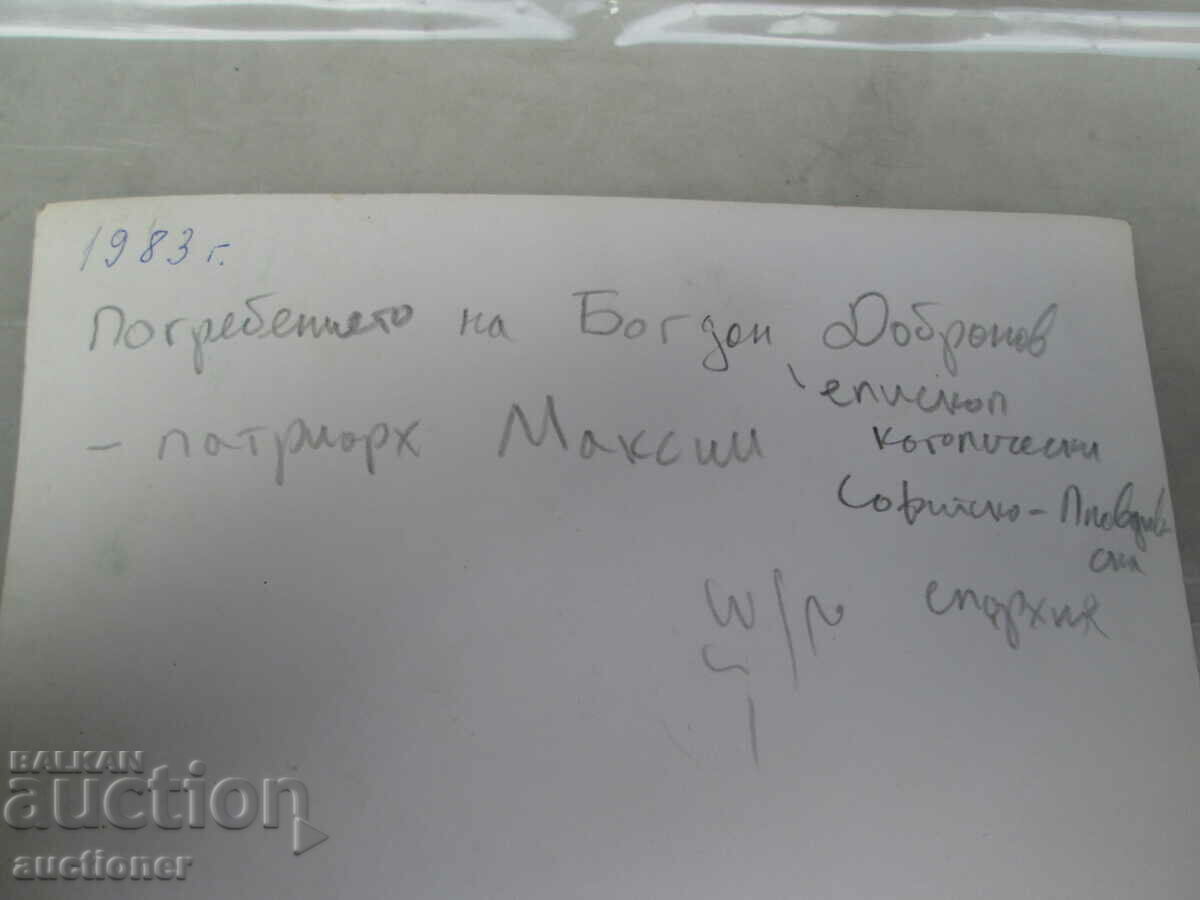 1983 г.
Погребението на Богдан Добранов
епископ
- патриарх Максим католически
Софийско-Пловдив-
ски
епархия
BALKAN
auction
auctioner